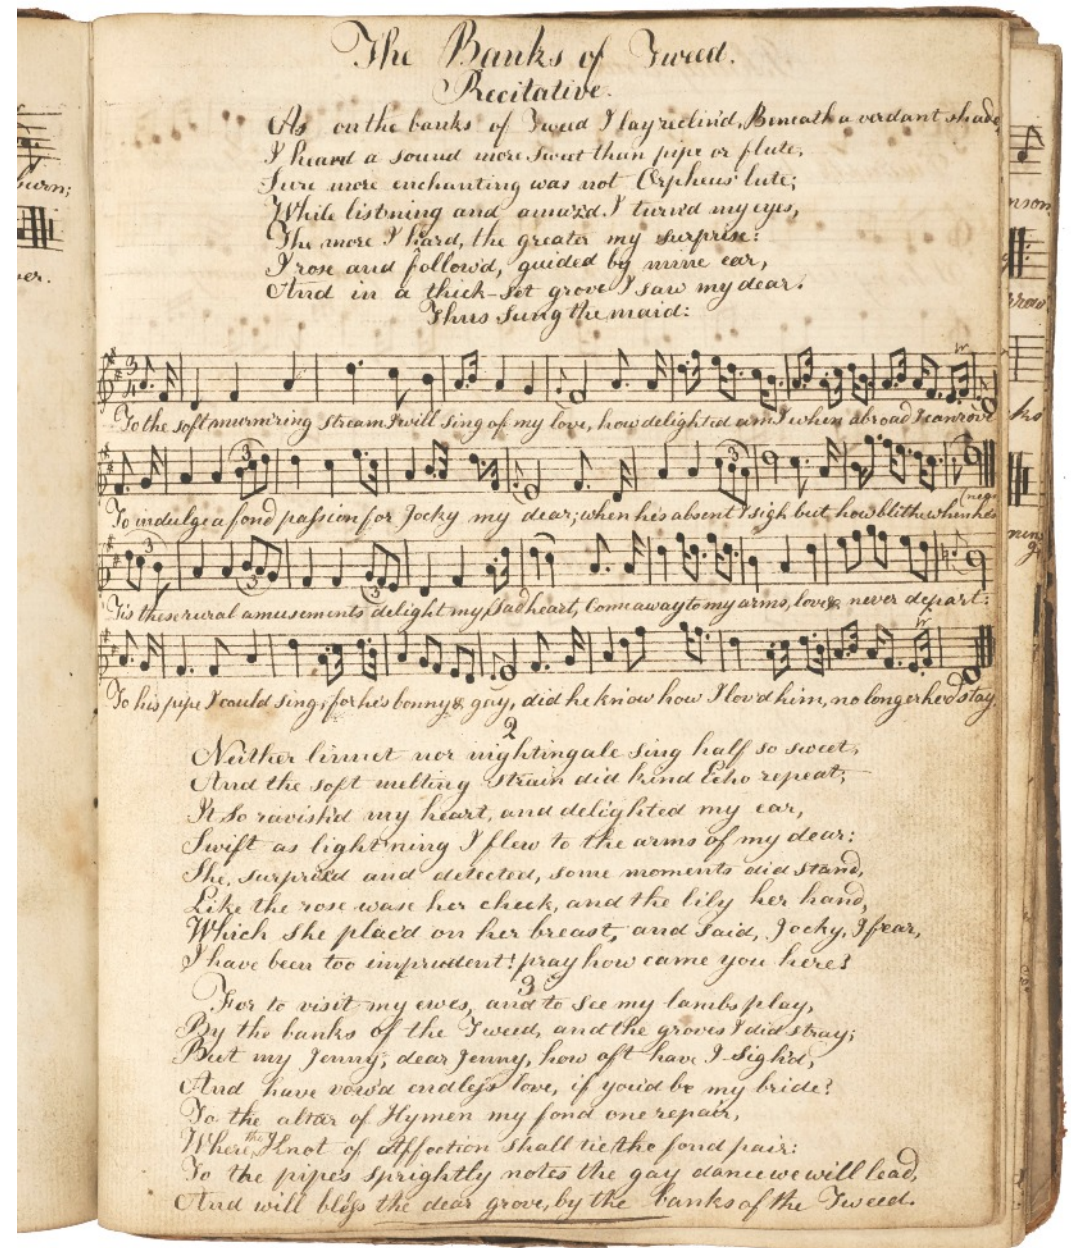 The Banks of Tweed.
Recitative.
As on the banks of Tweed I lay reclin'd, Beneath a verdant shade,
I heard a sound more sweet than pipe or flute,
Sure more enchanting was not Orpheus' lute;
While list'ning and amaz'd I turn'd my eyes,
The more I heard, the greater my surprise:
I rose and follow'd, guided by mine ear,
And in a thick-set grove I saw my dear.
Thus sung the maid:
burn;
er.
To the soft murm'ring stream I will sing of my love, how delighted am I when abroad I can rove
To indulge a fond passion for Jocky my dear; when he's absent I sigh but how blithe when he's
(near
'Tis these rural amusements delight my sad heart, Come away to my arms, love & never depart:
To his pipe I could sing, for he's bonny & gay, did he know how I lov'd him, no longer he'd stay.
2
Neither linnet nor nightingale sing half so sweet,
And the soft melting strain did kind Echo repeat;
It so ravish'd my heart, and delighted my ear,
Swift as light'ning I flew to the arms of my dear:
She, surpris'd and detected, some moments did stand,
Like the rose wase her cheek, and the lily her hand,
Which she plac'd on her breast, and said, Jocky, I fear,
I have been too imprudent! pray how came you here?
3
For to visit my ewes, and to see my lambs play,
By the banks of the Tweed, and the groves I did stray;
But my Jenny, dear Jenny, how oft have I sigh'd,
And have vow'd endless love, if you'd be my bride?
To the altar of Hymen my fond one repair,
Where the Knot of Affection shall tie the fond pair:
To the pipe's sprightly notes the gay dance we will lead,
And will bless the dear grove, by the banks of the Tweed.